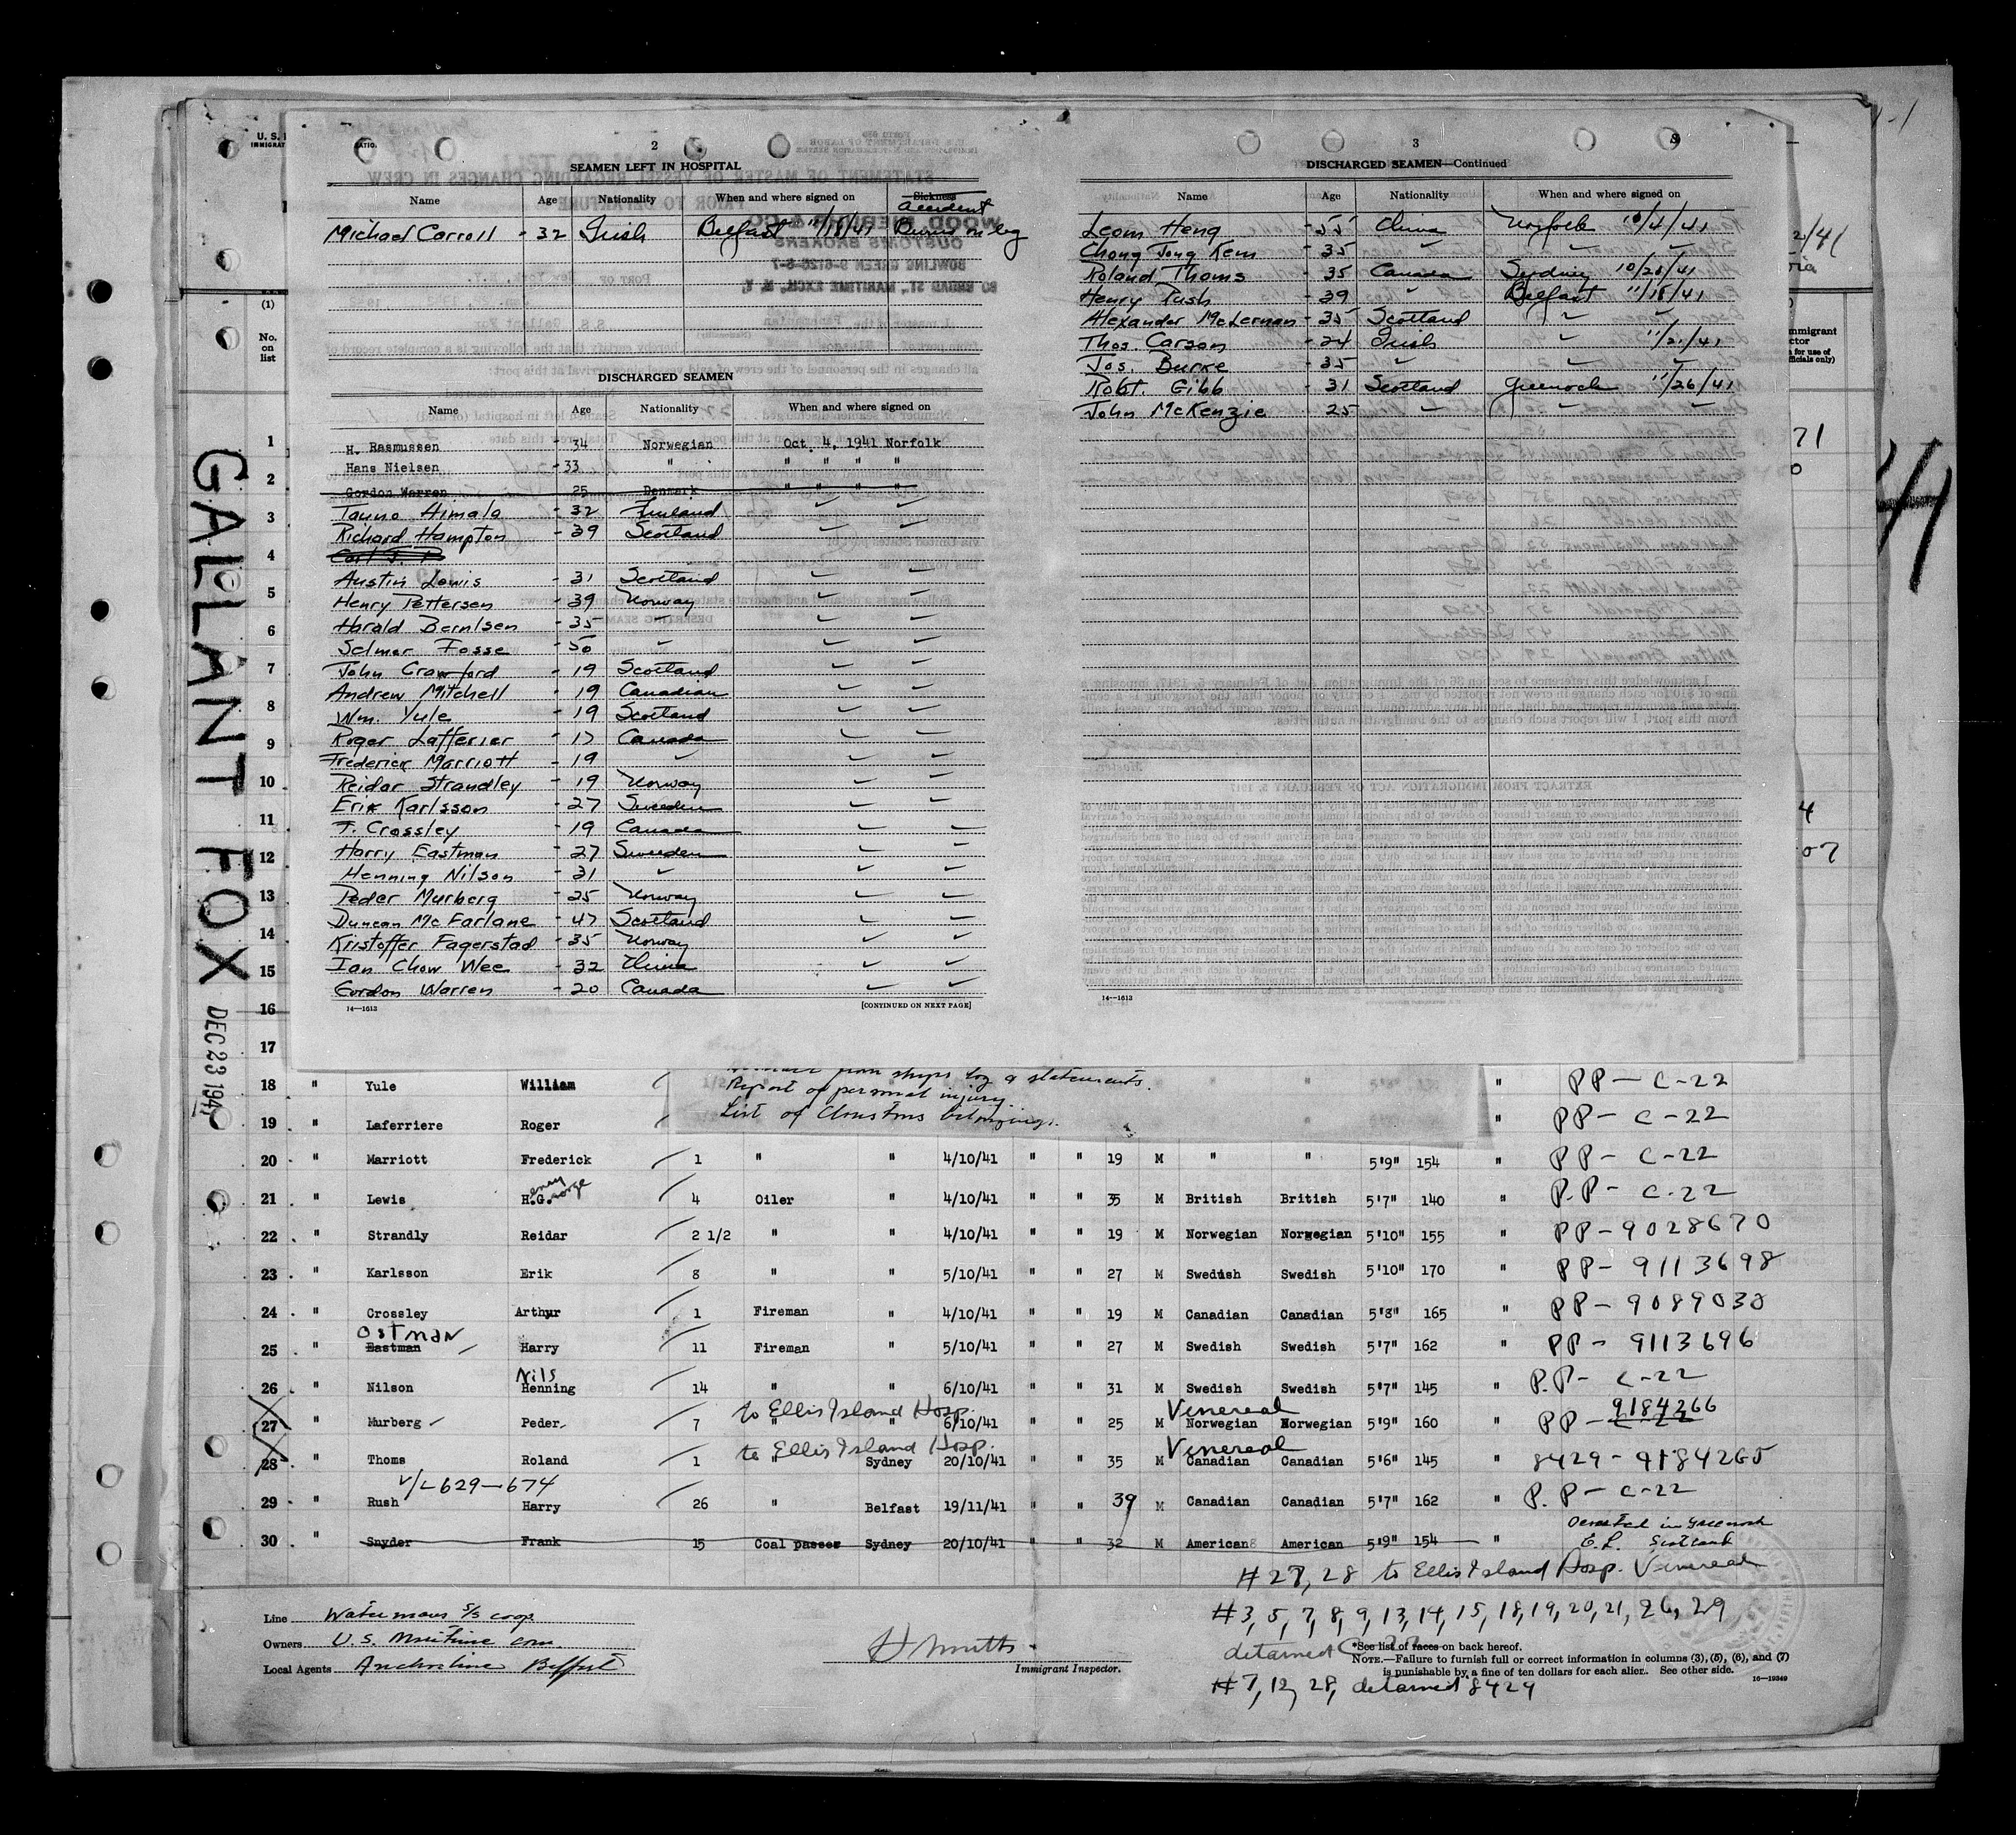 GALLANT FOX DEC 23 1941
2
SEAMEN LEFT IN HOSPITAL
Name Age Nationality When and where signed on Sickness
Accident
Michael Carroll - 32 Irish Belfast 11/18/41 Burns on leg
DISCHARGED SEAMEN
Name Age Nationality When and where signed on
H. Rasmussen 34 Norwegian Oct. 4, 1941 Norfolk
Hans Nielsen - 33 " " " " "
Gordon Warren 25 Denmark " " " "
Tauno Aimala - 32 Finland ✓ ✓
Richard Hampton - 39 Scotland ✓ ✓
Austin Lewis - 31 Scotland ✓ ✓
Henry Pettersen - 39 Norway ✓ ✓
Harald Berntsen - 35 ✓ ✓ ✓
Selmer Fosse - 50 ✓ ✓ ✓
John Crawford - 19 Scotland ✓ ✓
Andrew Mitchell - 19 Canadian ✓ ✓
Wm. Yule - 19 Scotland ✓ ✓
Roger Lafferier - 17 Canada ✓ ✓
Frederick Marriott - 19 ✓ ✓ ✓
Reidar Strandley - 19 Norway ✓ ✓
Erik Karlsson - 27 Sweden ✓ ✓
F. Crossley - 19 Canada ✓ ✓
Harry Eastman - 27 Sweden ✓ ✓
Henning Nilson - 31 ✓ ✓ ✓
Peder Murberg - 25 Norway ✓ ✓
Duncan McFarlane - 47 Scotland ✓ ✓
Kristoffer Fagerstad - 35 Norway ✓ ✓
Ian Chow Wee - 32 China ✓ ✓
Gordon Warren - 20 Canada ✓ ✓
14—1613 [CONTINUED ON NEXT PAGE]
3
DISCHARGED SEAMEN—Continued
Name Age Nationality When and where signed on
Leom Heng - 55 China Norfolk 10/4/41
Chong Jong Kem - 35 ✓ ✓ ✓
Roland Thoms - 35 Canada Sydney 10/20/41
Henry Rush - 39 " Belfast 11/18/41
Alexander McLernan - 35 Scotland ✓ ✓
Thos. Carson - 24 Irish ✓ 11/21/41
Jos. Burke - 35 ✓ ✓ ✓
Robt. Gibb - 31 Scotland Greenock 11/26/41
John McKenzie - 25 ✓ ✓ ✓
14—1613
U. S.
(1)
No. on list
1
2
3
4
5
6
7
8
9
10
11
12
13
14
15
16
17
from ships log & statements.
Report of personal injury.
List of Cloustons belongings.
18 " Yule William " PP - C-22
19 " Laferriere Roger " PP - C-22
20 " Marriott Frederick 1 " " 4/10/41 " " 19 M " " 5'9" 154 " PP - C-22
21 " Lewis H.G. 4 Oiler " 4/10/41 " " 35 M British British 5'7" 140 " P.P - C-22
22 " Strandly Reidar 2 1/2 " " 4/10/41 " " 19 M Norwegian Norwegian 5'10" 155 " PP - 9028670
23 " Karlsson Erik 8 " " 5/10/41 " " 27 M Swedish Swedish 5'10" 170 " PP - 9113698
24 " Crossley Arthur 1 Fireman " 4/10/41 " " 19 M Canadian Canadian 5'8" 165 " PP - 9089030
Ostman
25 " Eastman Harry 11 Fireman " 5/10/41 " " 27 M Swedish Swedish 5'7" 162 " PP - 9113696
Nils
26 " Nilson Henning 14 " " 6/10/41 " " 31 M Swedish Swedish 5'7" 145 " P.P - C-22
to Ellis Island Hosp. Venereal 9184266
27 " Murberg Peder 7 " " 6/10/41 25 M Norwegian Norwegian 5'9" 160 " PP - C-22
to Ellis Island Hosp. Venereal
28 " Thoms Roland 1 " Sydney 20/10/41 " " 35 M Canadian Canadian 5'6" 145 " 8429 - 9184265
V/L 629-674
29 " Rush Harry 26 " Belfast 19/11/41 " " 39 M Canadian Canadian 5'7" 162 " P.P - C-22
30 " Snyder Frank 15 Coal passer Sydney 20/10/41 " " 32 M American American 5'9" 154 " Deserted in Greenock
E.L. Scotland
#27, 28 to Ellis Island Hosp. Venereal
#3, 5, 7, 8, 9, 13, 14, 15, 18, 19, 20, 21, 26, 29
detained C-22
#7, 12, 28, detained 8429
Line Watermans S/S coop
Owners U.S. Maritime com.
Local Agents Anchorline Belfast
Immigrant Inspector.
*See list of races on back hereof.
NOTE.—Failure to furnish full or correct information in columns (3), (5), (6), and (7)
is punishable by a fine of ten dollars for each alien. See other side.
16—19349